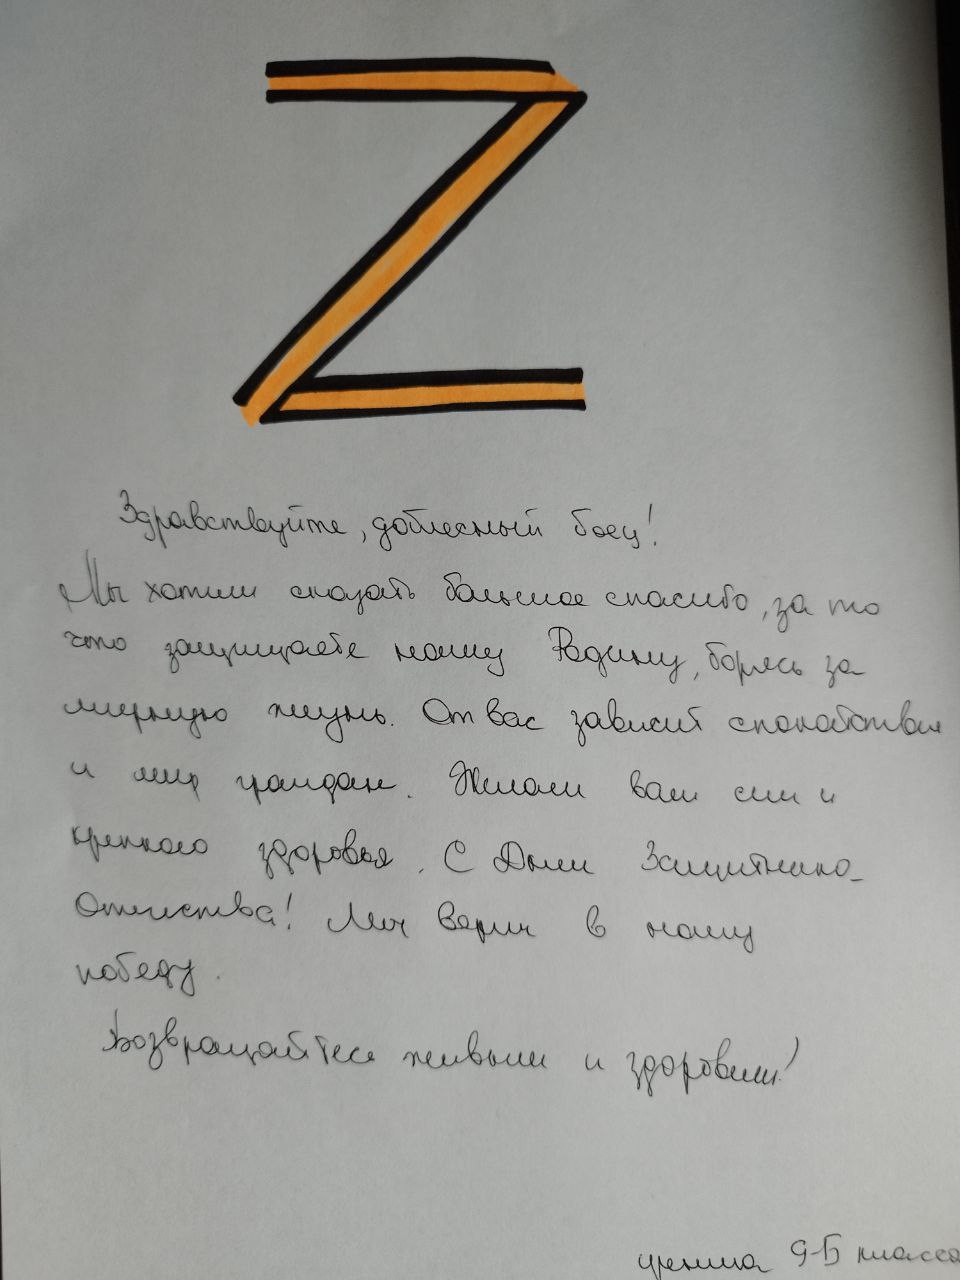 Z
Здравствуйте, доблесный боец!
Мы хотим сказать большое спасибо, за то
что защищаете нашу Родину, борясь за
мирную жизнь. От вас зависит спокойствие
и мир граждан. Желаем вам сил и
крепкого здоровья. С Днём Защитника
Отечества! Мы верим в нашу
победу.
Возвращайтесь живыми и здоровыми!
ученица 9-Б класса